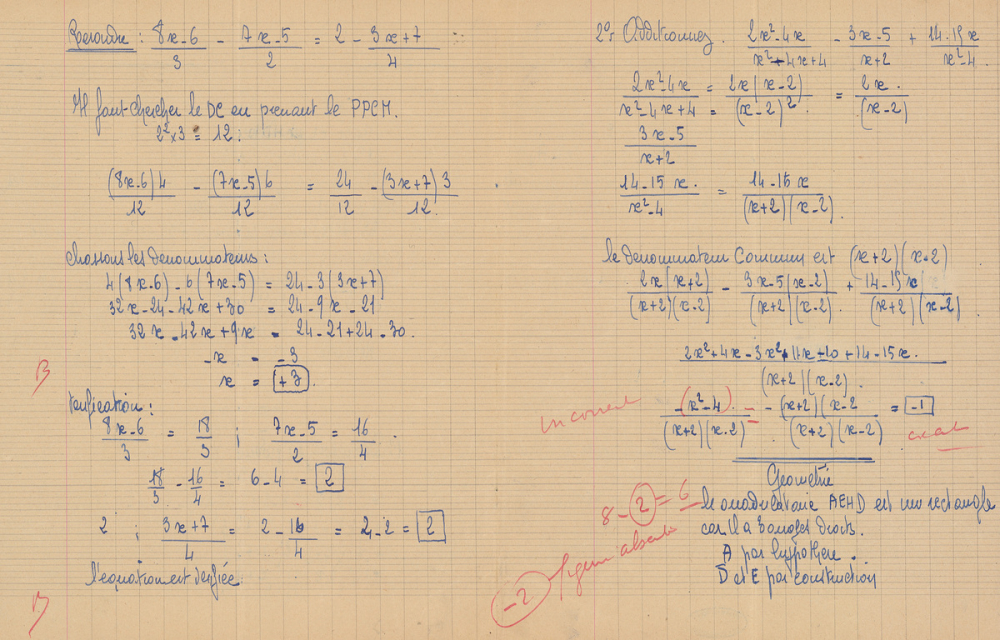 Resoudre : 8x-6/3 - 7x-5/2 = 2 - 3x+7/4
Il faut chercher le DC en prenant le PPCM.
2² x 3 = 12.
(8x-6)4/12 - (7x-5)6/12 = 24/12 - (3x+7)3/12
chassons les denominateurs :
4(8x-6) - 6(7x-5) = 24-3(3x+7)
32x-24-42x+30 = 24-9x-21
32x-42x+9x = 24-21+24-30.
-x = -3
x = +3.
B
Verification :
8x-6/3 = 18/3 ; 7x-5/2 = 16/4.
18/3 - 16/4 = 6-4 = 2
2 ; 3x+7/4 = 2-16/4 = 2-2 = 2
l'equation est verifiée.
B
2°. Additionnez. 2x²-4x/x²-4x+4 - 3x-5/x+2 + 14-15x/x²-4
2x²-4x/x²-4x+4 = 2x(x-2)/(x-2)² = 2x/(x-2)
3x-5/x+2
14-15x/x²-4 = 14-15x/(x+2)(x-2).
le denominateur Commun est (x+2)(x-2)
2x(x+2)/(x+2)(x-2) - 3x-5(x-2)/(x+2)(x-2) + 14-15x/(x+2)(x-2)
2x²+4x-3x²+11x-10+14-15x/(x+2)(x-2).
incorrect
-(x²-4)/(x+2)(x-2) = -(x+2)(x-2/(x+2)(x-2) = -1
exact
Géométrie
8-2 = 6
le quadrilatère AEHD est un rectangle
car il a 3 angles droits.
A par hypothèse.
D et E par construction
-2 figure absente